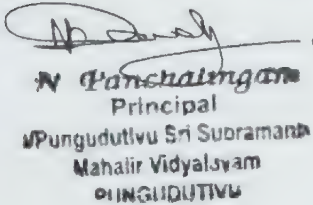 N Panchalingam
Principal
J/Pungudutivu Sri Subramania
Mahalir Vidyalayam
PUNGUDUTIVU